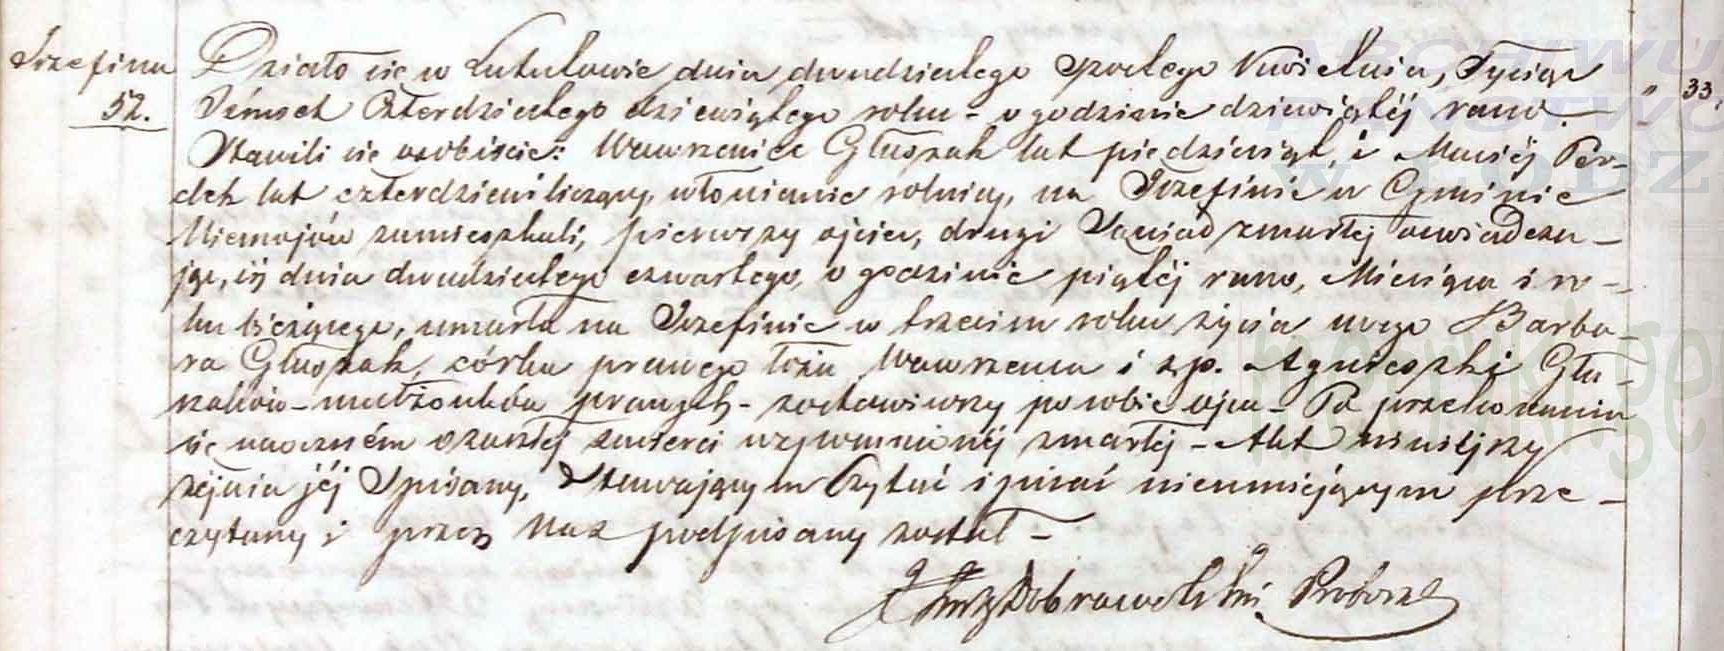 Józefina
52.
Działo się w Lututowie dnia dwudziestego szóstego Kwietnia, Tysiąc
Ośmset Czterdziestego dziewiątego roku – o godzinie dziewiątéj rano. –
Stawili się osobiście: Wawrzeniec Głuszak lat piędziesiąt, i Maciéj Per-
dek lat czterdzieści liczący, włościanie rolnicy, na Józefinie w Gminie
Niemojów zamieszkali, pierwszy ojciec, drugi Sąsiad zmarłej oświadcza-
jąc, iż dnia dwudziestego czwartego, o godzinie piątéj rano, Miesiąca i ro-
ku bieżącego, umarła na Józefinie w trzecim roku życia swego Barba-
ra Głuszak, córka prawego łoża Wawrzeńca i ś.p. Agnieszki Głu-
szaków – małżonków prawych – zostawiwszy po sobie ojca – Po przekonaniu
się naoczném o zaszłej śmierci wzpomnionéj zmarłej – Akt niniejszy
zejścia jéj Spisany, Stawającym Czytać i pisać nieumiejącym prze-
czytany i przez Nas podpisany został –
X Dobrowolski Proboszcz
33
ARCHIWUM
PAŃSTWO
W ŁODZ
metryki.ge